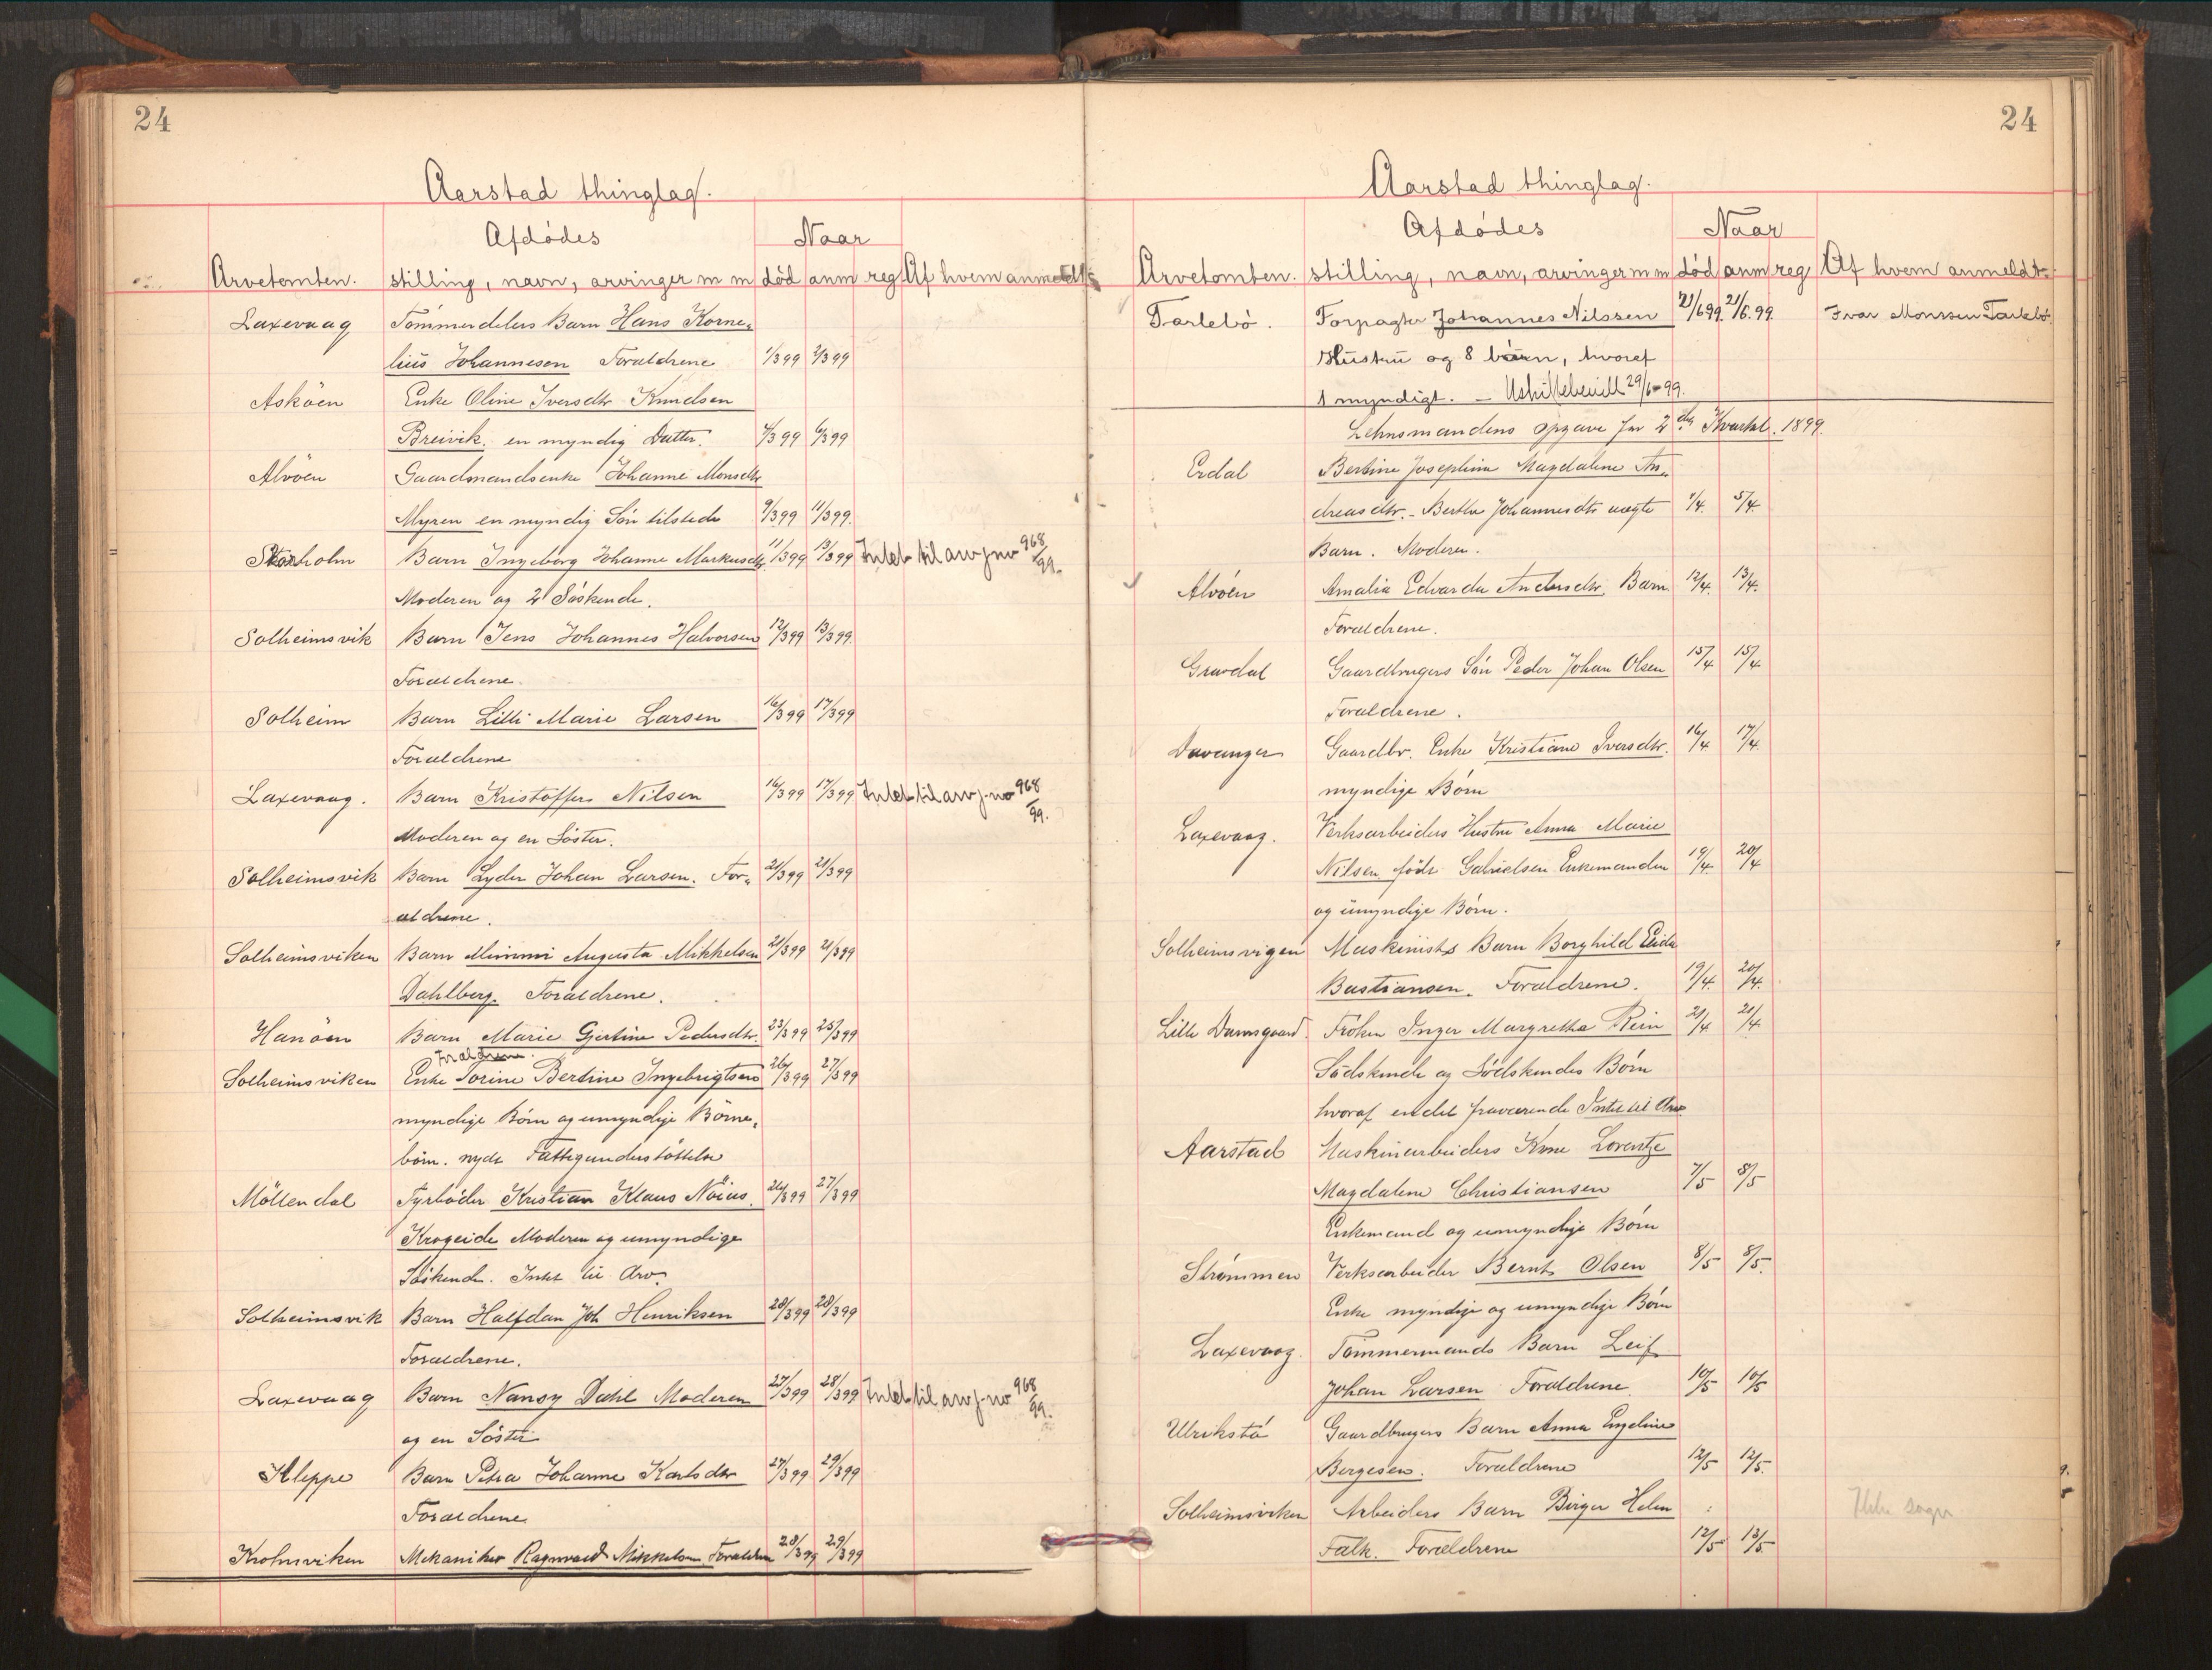 24
Aarstad thinglag.
Afdödes
Naar
Arvetomten. stilling, navn, arvinger m m död anm reg Af hvem anmeldt
Laxevaag Tömmerdelers Barn Hans Korne-
lius Johannesen Forældrene 1/3 99 2/3 99
Asköen Enke Oline Iversdtr Knudsen
Breivik. en myndig Datter. 4/3 99 6/3 99
Alvöen Gaardmandsenke Johanne Monsdtr
Myren en myndig Sön tilstede 9/3 99 11/3 99.
Storholm Barn Ingeborg Johanne Markusdtr. 11/3 99 13/3 99 Intet til arv j no 968/99.
Moderen og 2 Söskende.
Solheimsvik Barn Jens Johannes Halvorsen 12/3 99 13/3 99.
Forældrene.
Solheim Barn Lilli Marie Larsen 16/3 99 17/3 99
Forældrene
Laxevaag. Barn Kristoffer Nilsen 16/3 99 17/3 99 Intet til arv j-no 968/99.
Moderen og en Söster.
Solheimsvik Barn Lyder Johan Larsen. For- 21/3 99 21/3 99
ældrene.
Solheimsviken Barn Mimmi Augusta Mikkelsen 21/3 99 21/3 99
Dahlberg. Forældrene.
Hanöen Barn Marie Gjertine Pedersdtr. 23/3 99 25/3 99
Forældrene.
Solheimsviken Enke Torine Bertine Ingebrigtsen 26/3 99 27/3 99
myndige Börn og umyndige Börne-
börn. nydt Fattigunderstöttelse
Möllendal Fyrböder Kristian Klaus Nöius. 26/3 99 27/3 99
Krogeide Moderen og umyndige
Söskende. Intet til Arv.
Solheimsvik Barn Halfdan Joh Henriksen 28/3 99 28/3 99
Forældrene.
Laxevaag Barn Nansy Dahl Moderen 27/3 99 28/3 99 Intet til arv j-no 968/99.
og en Söster
Kleppe Barn Petra Johanne Karlsdtr 27/3 99 29/3 99
Forældrene
Krohnsviken Mekaniker Ragnvald Mikkelsen Forældrene 28/3 99 29/3 99
24
Aarstad thinglag.
Afdödes
Naar
Arvetomten. stilling, navn, arvinger m m död anm reg Af hvem anmeldt.
Tarlebö. Forpagter Johannes Nilssen 21/6 99. 21/6. 99. Ivar Monssen Tarlebö.
Hustru og 8 börn, hvoraf
1 myndigt. – Uskiftebevill 29/6-99.
Lehnsmandens opgave for 2det Kvartal. 1899.
Erdal Bertine Josephine Magdalene An-
dreasdtr. - Berthe Johannesdtr uægte 1/4. 5/4.
Barn. Moderen.
Alvöen Amalia Edvarda Andersdtr. Barn 12/4. 13/4.
Forældrene.
Gravdal Gaardbrugers Sön Peder Johan Olsen 15/4 15/4
Forældrene.
Davanger Gaardbr. Enke Kristiane Iversdtr. 16/4 17/4
myndige Börn
Laxevaag. Verksarbeiders Hustru Anna Marie
Nilsen födt Gabrielsen Enkemanden 19/4 20/4
og umyndige Börn.
Solheimsvigen Maskinists Barn Borghild Eida
Bastiansen. Forældrene. 19/4. 20/4.
Lille Damsgaard. Fröken Inger Margrethe Rein 21/4 21/4
Södskende og Södskendes Börn
hvoraf endel fraværende Intet til Arv
Aarstad Maskinarbeiders Kone Lorentze
Magdalene Christiansen 7/5 8/5
Enkemand og umyndige Börn
Strömmen Verksarbeider Bernt Olsen 8/5 8/5.
Enke myndige og umyndige Börn
Laxevaag. Tömmermands Barn Leif
Johan Larsen Forældrene. 10/5 10/5
Ulrikstö Gaardbrugers Barn Anna Engeline
Børgesen. Forældrene 12/5 12/5.
Solheimsviken Arbeiders Barn Birger Helm
Falk. Forældrene 12/5 13/5